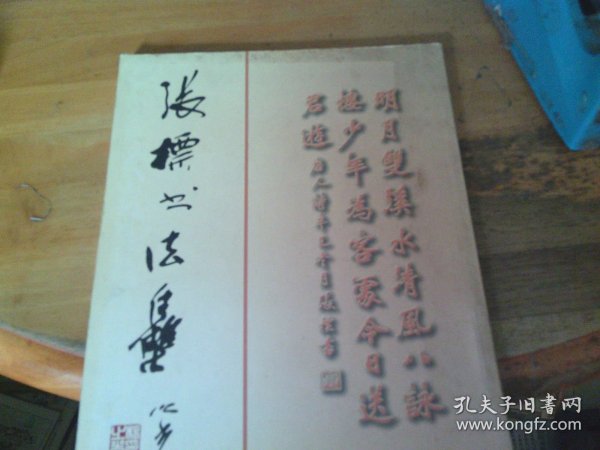 張標书法集
明月雙溪水清風八詠
樓少年為客處今日送
君遊
孔夫子旧書网
www.kongfz.com